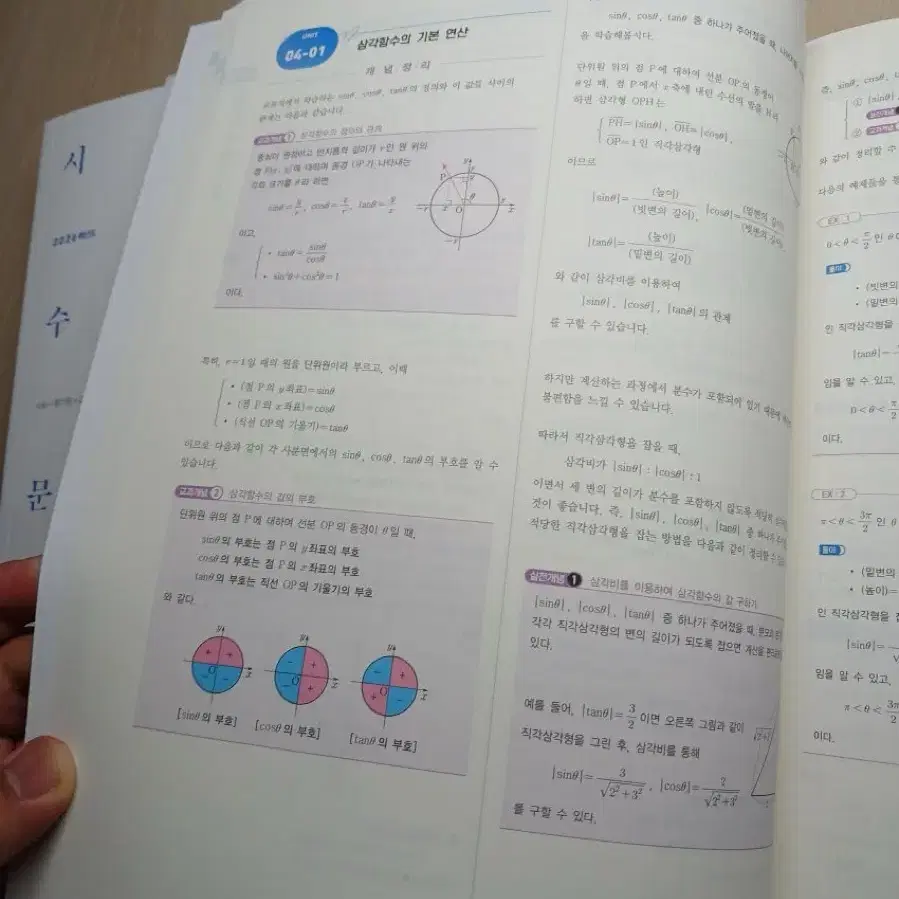 시
수
문
UNIT
04-01
삼각함수의 기본 연산
개 념 정 리
교과개념 1 삼각함수의 정의와 관계
중심이 원점이고 반지름의 길이가 r인 원 위의
점 P(x, y)에 대하여 동경 OP가 나타내는
각의 크기를 θ라 하면
sinθ=y/r, cosθ=x/r, tanθ=y/x
이고,
• tanθ=sinθ/cosθ
• sin²θ+cos²θ=1
이다.
특히, r=1일 때의 원을 단위원이라 부르고, 이때
• (점 P의 y좌표)=sinθ
• (점 P의 x좌표)=cosθ
• (직선 OP의 기울기)=tanθ
이므로 다음과 같이 각 사분면에서의 sinθ, cosθ, tanθ의 부호를 알 수
있습니다.
교과개념 2 삼각함수의 값의 부호
단위원 위의 점 P에 대하여 선분 OP의 동경이 θ일 때,
sinθ의 부호는 점 P의 y좌표의 부호
cosθ의 부호는 점 P의 x좌표의 부호
tanθ의 부호는 직선 OP의 기울기의 부호
와 같다.
[sinθ의 부호] [cosθ의 부호] [tanθ의 부호]
sinθ, cosθ, tanθ 중 하나가 주어졌을 때,
을 학습해봅시다.
단위원 위의 점 P에 대하여 선분 OP의 동경이
θ일 때, 점 P에서 x축에 내린 수선의 발을 H라
하면 삼각형 OPH는
PH=|sinθ|, OH=|cosθ|,
OP=1인 직각삼각형
이므로
|sinθ|=(높이)/(빗변의 길이), |cosθ|=(밑변의 길이)/(빗변의 길이),
|tanθ|=(높이)/(밑변의 길이)
와 같이 삼각비를 이용하여
|sinθ|, |cosθ|, |tanθ|의 관계
를 구할 수 있습니다.
하지만 계산하는 과정에서 분수가 포함되어 있기 때문에
불편함을 느낄 수 있습니다.
따라서 직각삼각형을 잡을 때,
삼각비가 |sinθ| : |cosθ| : 1
이면서 세 변의 길이가 분수를 포함하지 않도록
것이 좋습니다. 즉, |sinθ|, |cosθ|, |tanθ| 중 하나가
적당한 직각삼각형을 잡는 방법을 다음과 같이 정리할 수
실전개념 1 삼각비를 이용하여 삼각함수의 값 구하기
|sinθ|, |cosθ|, |tanθ| 중 하나가 주어졌을 때,
각각 직각삼각형의 변의 길이가 되도록 잡으면 계산을
있다.
예를 들어, |tanθ|=3/2 이면 오른쪽 그림과 같이
직각삼각형을 그린 후, 삼각비를 통해
|sinθ|=3/√2²+3², |cosθ|=2/√2²+3²
를 구할 수 있다.
즉, sinθ, cosθ,
① |sinθ|
②
와 같이 정리할 수
다음의 예제들을
EX 1
0<θ<π/2 인 θ
풀이
• (빗변의
• (밑변의
인 직각삼각형을
|tanθ|=
임을 알 수 있고,
0<θ<π/2
이다.
EX 2
π<θ<3π/2 인 θ
풀이
• (밑변의
• (높이)=
인 직각삼각형을
|sinθ|=
임을 알 수 있고,
π<θ<3π/2
이다.